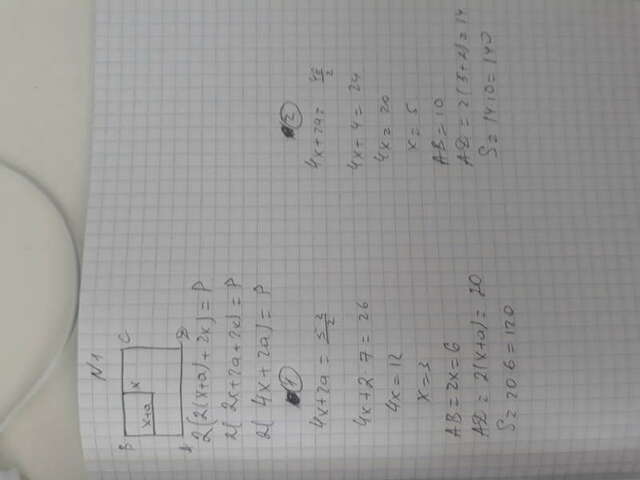 N1
B C
x+a x
A D
2(2(x+a)+2x)=P
2(2x+2a+2x)=P
2(4x+2a)=P
①
4x+2a = 52/2
4x+2·7=26
4x=12
x=3
AB=2x=6
AD=2(x+a)=20
S=20·6=120
②
4x+2a = 48/2
4x+4=24
4x=20
x=5
AB=10
AD=2(5+2)=14
S=14·10=140